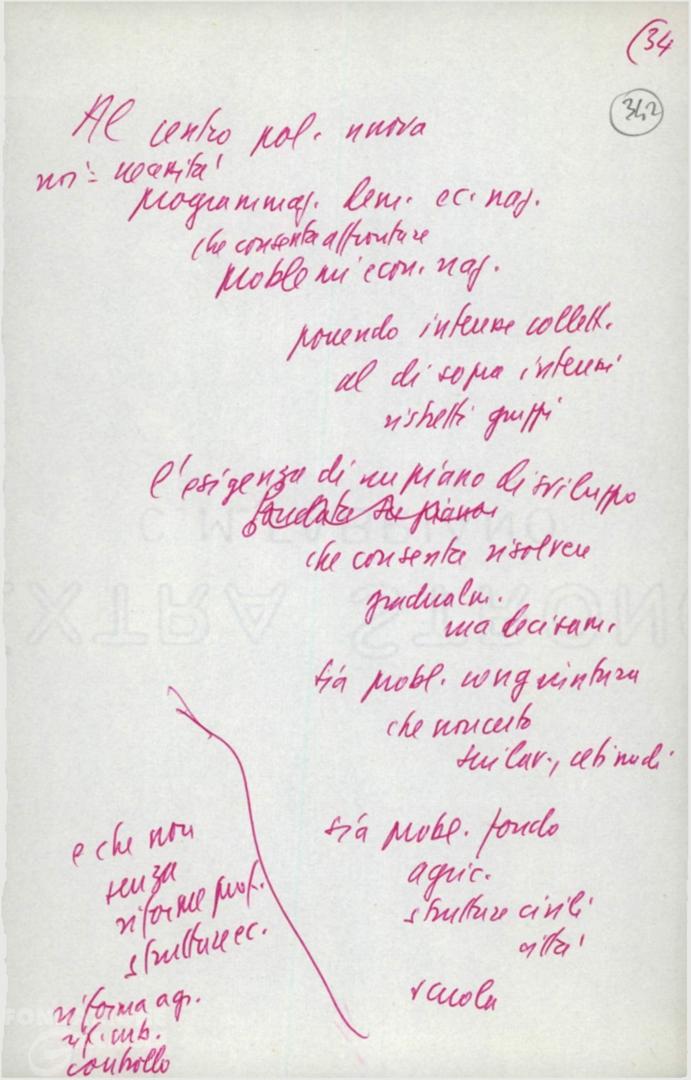 (34
342
Al centro pol. nuova
noi = necessità
programmaz. dem. ec. naz.
che consenta affrontare
problemi econ. naz.
ponendo interesse collett.
al di sopra interessi
ristretti gruppi
l'esigenza di un piano di sviluppo
fondata su piano
che consenta risolvere
gradualm.
ma decisam.
sia probl. congiuntura
che non certo
sui lav., ceti medi
sia probl. fondo
agric.
strutture civili
città
scuola
e che non
senza
riforme prof.
strutture ec.
riforma agr.
rif. urb.
controllo